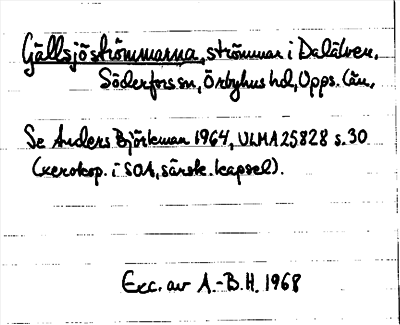 Gällsjöströmmarna, strömmar i Dalälven.
Söderfors sn, Örbyhus hd, Upps. län.
Se Anders Björkman 1964, ULMA 25828 s. 30
(xerokop. i SOA, särsk. kapsel).
Exc. av A.-B.H. 1968